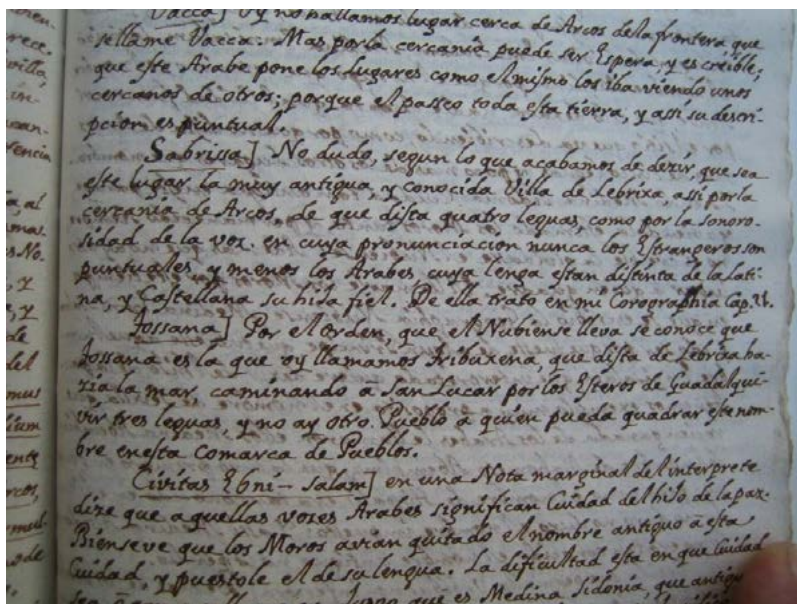 Vacca] Oy no hallamos lugar cerca de Arcos de la frontera, que
se llame Vacca. Mas por la cercania puede ser Espera, y es creible;
que este Arabe pone los Lugares como el mismo los iba viendo unos
cercanos de otros; porque el passeo toda esta tierra, y assi su descri-
pcion es puntual.
Sabrissa] No dudo, segun lo que acabamos de dezir, que sea
este lugar la muy antigua, y conocida Villa de Lebrixa, assi por la
cercania de Arcos, de que dista quatro leguas, como por la sonoro-
sidad de la voz, en cuya pronunciacion nunca los Estrangeros son
puntuales, y menos los Arabes cuya lenga es tan distinta de la lati-
na, y Castellana su hija fiel. De ella trato en mi Corographia Cap.
Jossana] Por el orden, que el Nubiense lleva se conoce que
Jossana es la que oy llamamos Tribuxena, que dista de Lebrixa ha-
zia la mar, caminando a San Lucar por los Esteros de Guadalqui-
vir tres leguas, y no ay otro Pueblo a quien pueda quadrar este nom-
bre en esta Comarca de Pueblos.
Civitas Ebni-Salam] en una Nota marginal del interprete
dize que aquellas vozes Arabes significan Ciudad del hijo de la paz.
Bien se ve que los Moros avian quitado el nombre antiguo a esta
Ciudad, y puestole el de su lengua. La dificultad esta en que Ciudad
sea que es Medina Sidonia, que
rece.
villa,
al
No.
y
de
del
mus
lium
ente
rcos,
mul-
de